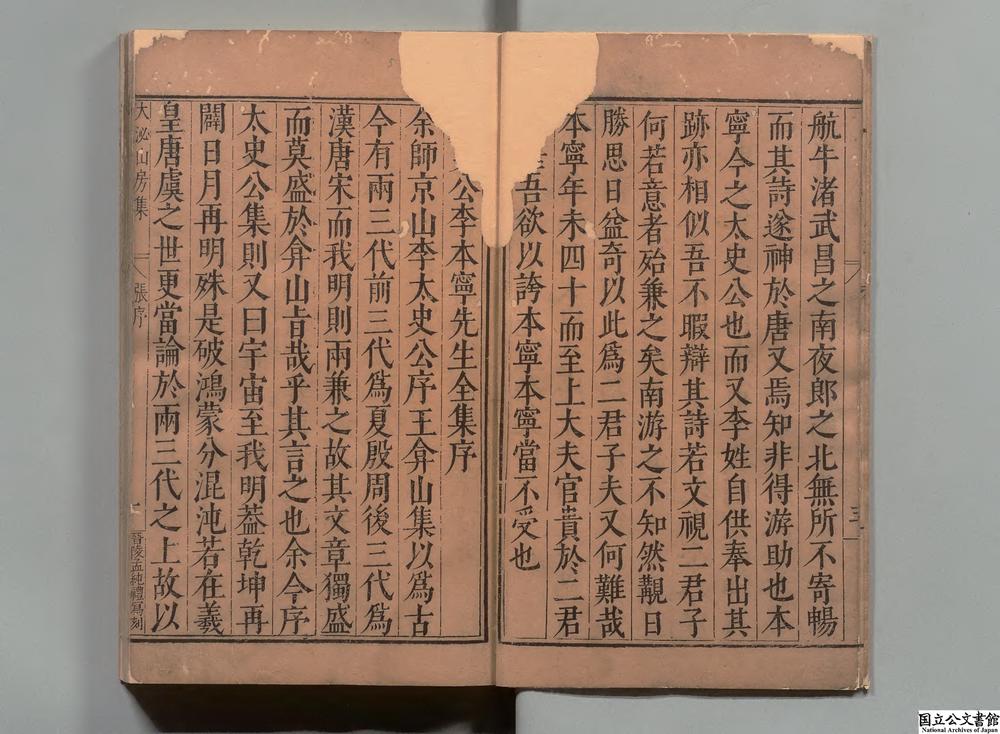 航牛渚武昌之南夜郎之北無所不寄暢
而其詩遂神於唐又焉知非得游助也本
寧今之太史公也而又李姓自供奉出其
跡亦相似吾不暇辯其詩若文視二君子
何若意者殆兼之矣南游之不知然覯日
勝思日益奇以此為二君子夫又何難哉
本寧年未四十而至上大夫官貴於二君
吾欲以誇本寧本寧當不受也
公李本寧先生全集序
余師京山李太史公序王弇山集以為古
今有兩三代前三代為夏殷周後三代為
漢唐宋而我明則兩兼之故其文章獨盛
而莫盛於弇山旨哉乎其言之也余今序
太史公集則又曰宇宙至我明葢乾坤再
闢日月再明殊是破鴻蒙分混沌若在羲
皇唐虞之世更當論於兩三代之上故以
大泌山房集 張序
晉陵孟純禮寫刻
国立公文書館
National Archives of Japan